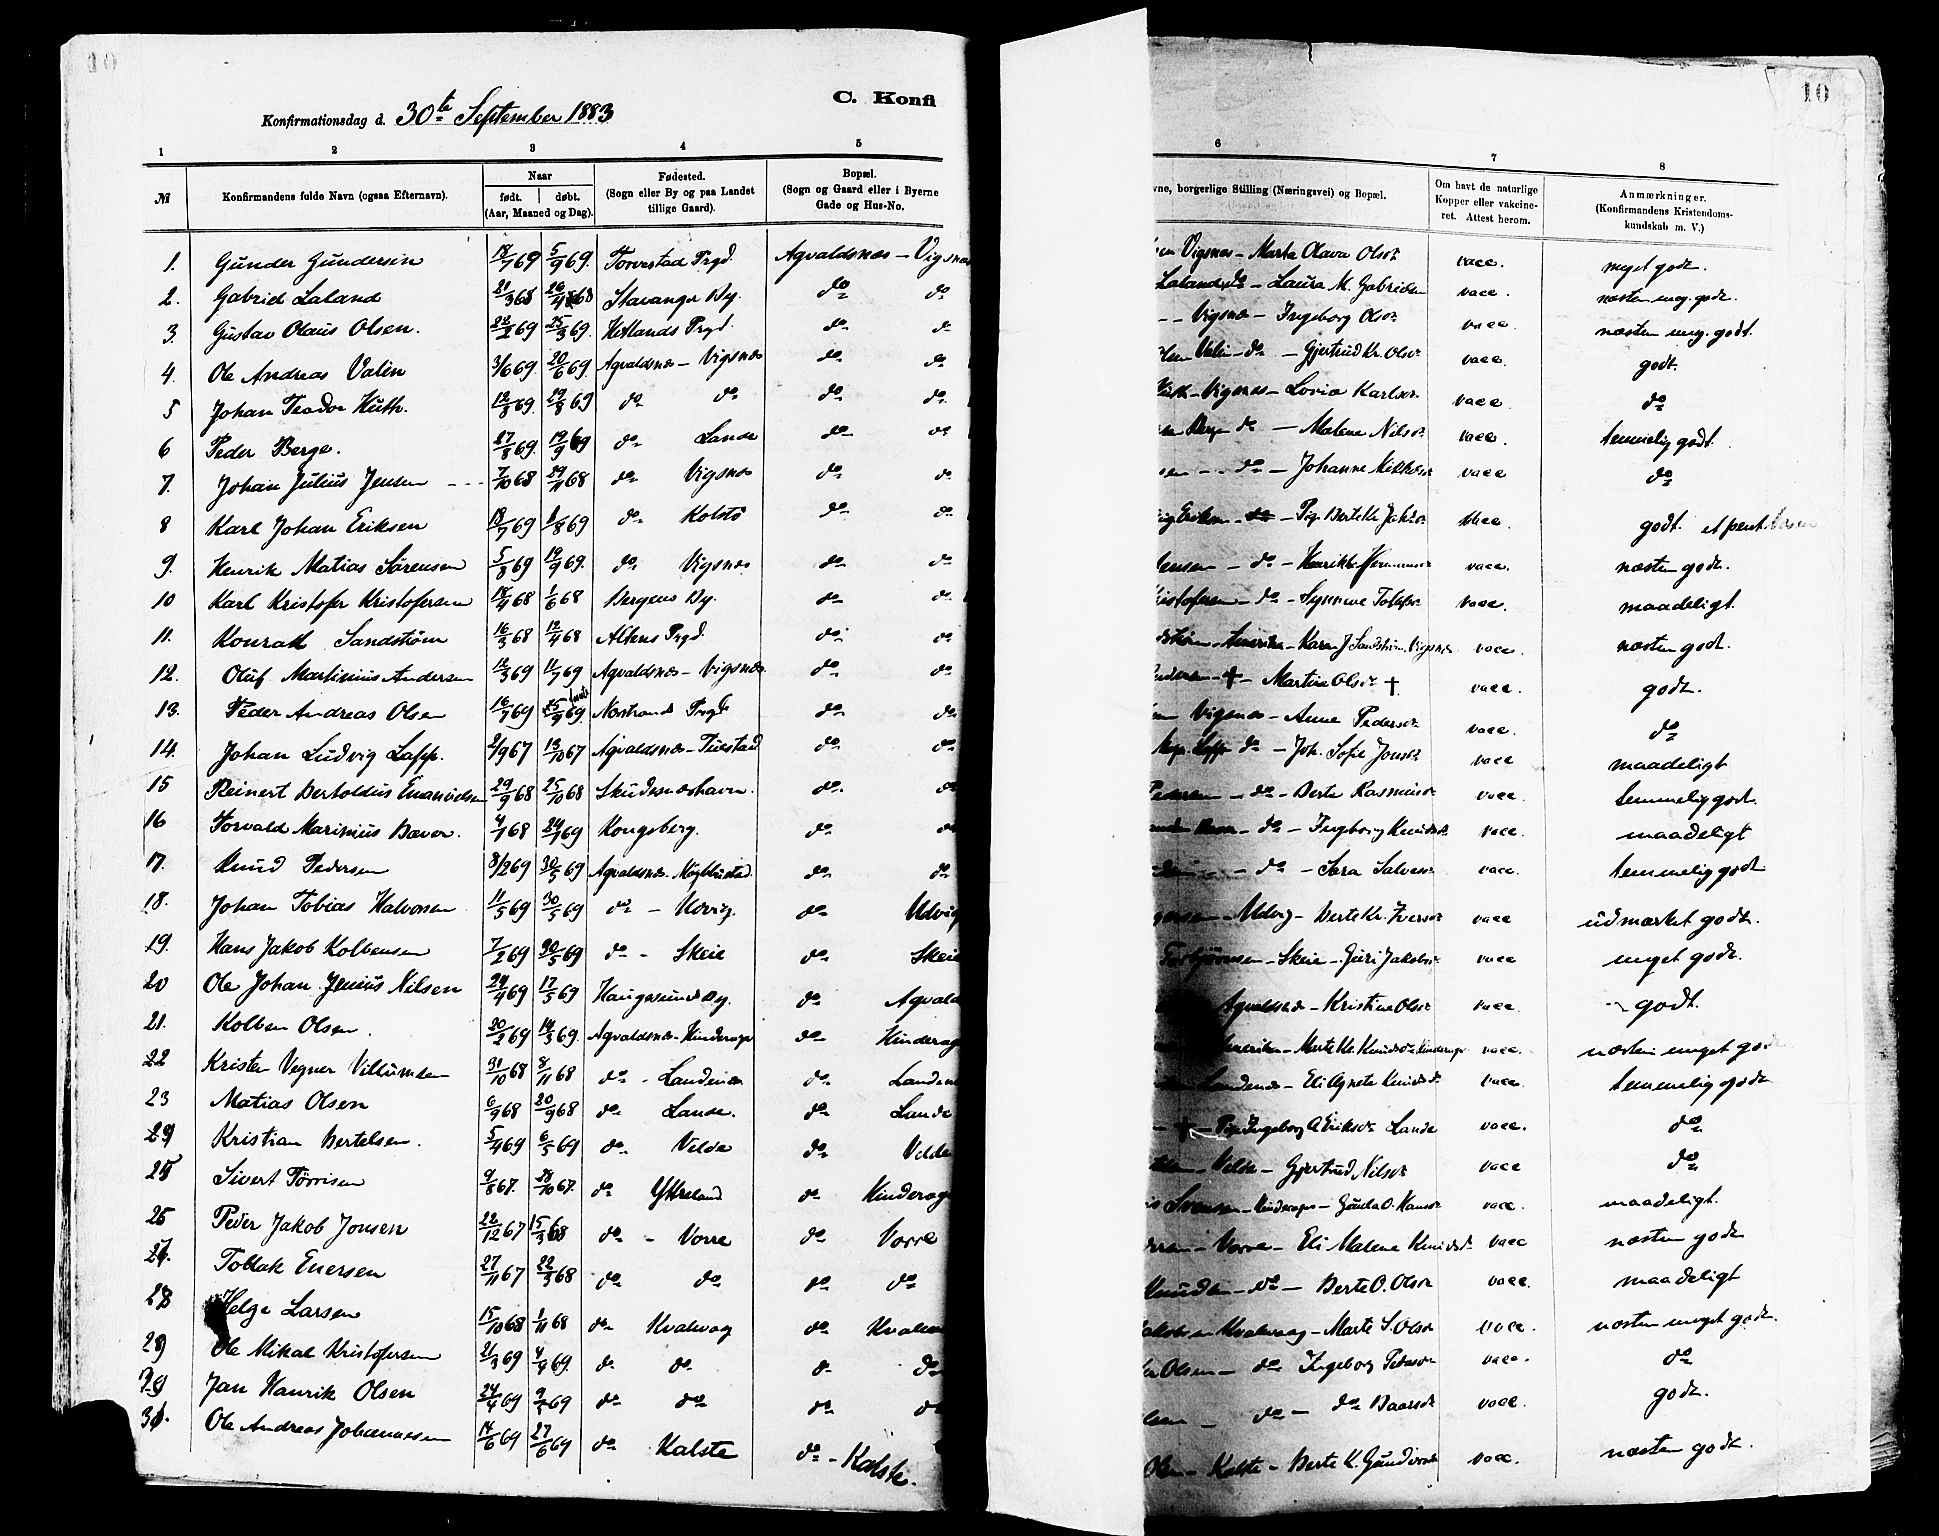 10
C. Konfi
10
Konfirmationsdag d. 30te September 1883
1 2 3 4 5 6 7 8
№ Konfirmandens fulde Navn (ogsaa Efternavn). Naar født. døbt. (Aar, Maaned og Dag). Fødested. (Sogn eller By og paa Landet tillige Gaard). Bopæl. (Sogn og Gaard eller i Byerne Gade og Hus-No. vne, borgerlige Stilling (Næringsvei) og Bopæl. Om havt de naturlige Kopper eller vakcineret. Attest herom. Anmærkninger. (Konfirmandens Kristendomskundskab m. V.)
1. Gunder Gundersen 18/7 69 5/9 69. Torvestad Prgd. Agvaldsnæs - Vigsnæs Vigsnæs - Marta Olava Olsdr vacc. meget godt.
2. Gabriel Laland 21/3 68 26/4 68 Stavanger By. do do Laland do - Laura M. Gabrielsen vacc. næsten meg. godt.
3. Gustav Olaus Olsen. 22/2 69 25/3 69. Hetlands Prgd. do do - - Vigsnæs - Ingeborg Olsdr vacc. næsten meg. godt.
4. Ole Andreas Valin 3/6 69 20/6 69. Agvaldsnæs - Vigsnæs do do Valin - do - Gjertrud Kr. Olsdr vacc. godt.
5 Johan Teodor Huth. 12/3 69. 19/8 69 do do do do Huth - Vigsnæs - Lovise Karlsdr vacc do
6 Peder Berge. 27/8 69. 19/9 69 do Lande do do Berge do - Malene Nilsdr vacc. temmelig godt.
7. Johan Julius Jensen - - - 7/10 68 29/11 68 do Vigsnæs do do sen - - do - Johanne vacc do
8 Karl Johan Eriksen 18/7 69 1/8 69 do Kolstö do do Eriksen - do - Pig. Berte Kr. vacc godt. et pent
9. Henrik Matias Sörensen 5/8 69 19/9 69. do Vigsnæs do do Jensen - do - Henrikke vacc. næsten godt.
10 Karl Kristofer Kristofersen 18/4 68 1/6 68 Bergens By. do do Kristofersen - do - Synneve vacc. maadeligt.
11. Konrad Sandström 16/3 68 12/4 68 Altens Prgd. do do Amerika - Karen J Sandström Vigsnæs vacc. næsten godt.
12. Oluf Martinius Andersen 12/3 69 11/7 69 Agvaldsnæs - Vigsnæs do do Andersen - † - Martine Olsdr † vacc. godt.
13. Peder Andreas Olsen 16/7 69 25/9 69. Nærstrands Prgd do do Vigsnæs - Anne Pedersdr vacc. do
14. Johan Ludvig Lapp. 2/9 67 13/10 67 Agvaldsnæs - Tuestad do do Lapp do - Joh. Sofie Jonsdr vacc maadeligt
15 Reinert Bertoldius Enanuelsen 29/9 68 25/10 68 Skudesneshavn. do do Pedersen - do - Berte Rasmusdr vacc. temmelig godt.
16 Torvald Marinius Bæver. 4/1 68 24/1 69 Kongsberg. do do - do - Ingeborg Knudsdr. vacc. maadeligt
17. Knud Pedersen 8/2 69 30/5 69 Agvaldsnæs. do do - do - Sara Salvesdr vacc. temmelig godt
18. Johan Tobias Halvorsen 11/5 69 30/5 69 do - Udvig. do Udvig - Udvig - Berte Kr. Iversdr vacc udmærket godt.
19. Hans Jakob Kolbensen 7/2 69 30/5 69 do - Skeie do Skeie Torbjörnsen - Skeie - Guri Jakobsdr vacc meget godt.
20 Ole Johan Jenius Nilsen 24/4 69 17/5 69 Haugesunds By. do Agvald Agvaldsnæs - Kristine Olsdr vacc. godt.
21. Kolben Olsen. 20/2 69 14/3 69. Agvaldsnæs - Hinderager do Hinderag Amerika - Merte Kr. Knudsdr Hinderager vacc. næsten meget godt
22 Krister Vegner Villumsen 31/10 68 8/11 68 do - Landenes do Landen Landenes - Eli Agnete Knudsdr vacc. temmelig godt
23 Matias Olsen 6/9 68 20/9 68 do - Lande. do Lande - † - Pige Ingeborg A Eriksdr Lande vacc. do
24 Kristian Bertelsen. 5/4 69 6/5 69 do Velde do Velde - Velde - Gjertrud Nilsdr vacc do
25 Sivert Törrisen 9/8 67. 28/10 67. do Ytreland do Hinderage Svensen - Hinderager - Gunla O. Hansdr vacc. maadeligt.
26 Peder Jakob Jonsen 22/12 67 15/3 68 do - Vorre do Vorre - Vorre - Eli Malene Knudsdr vacc næsten godt
27. Tollak Enersen 27/11 67 22/3 68 do do do do Knudsen - do - Berte O. Olsdr vacc. maadeligt
28 Helge Larsen 15/10 68 1/11 68 do Kvalvag do Kvalva Jakobsen Kvalvaag - Marte S. Olsdr vacc. næsten meget godt.
29 Ole Mikal Kristofersen 21/3 69 4/4 69. do do do do Olsen - do Ingeborg Pedersdr vacc. do
30 Jan Henrik Olsen 24/4 69 9/5 69 do do do do - do - do Baarsdr vacc. godt.
31. Ole Andreas Johannessen 14/6 69 27/6 69 do Kalstø do - Kalstø. Olsen - Kalstø - Berte K. Gundersdr vacc. næsten godt.